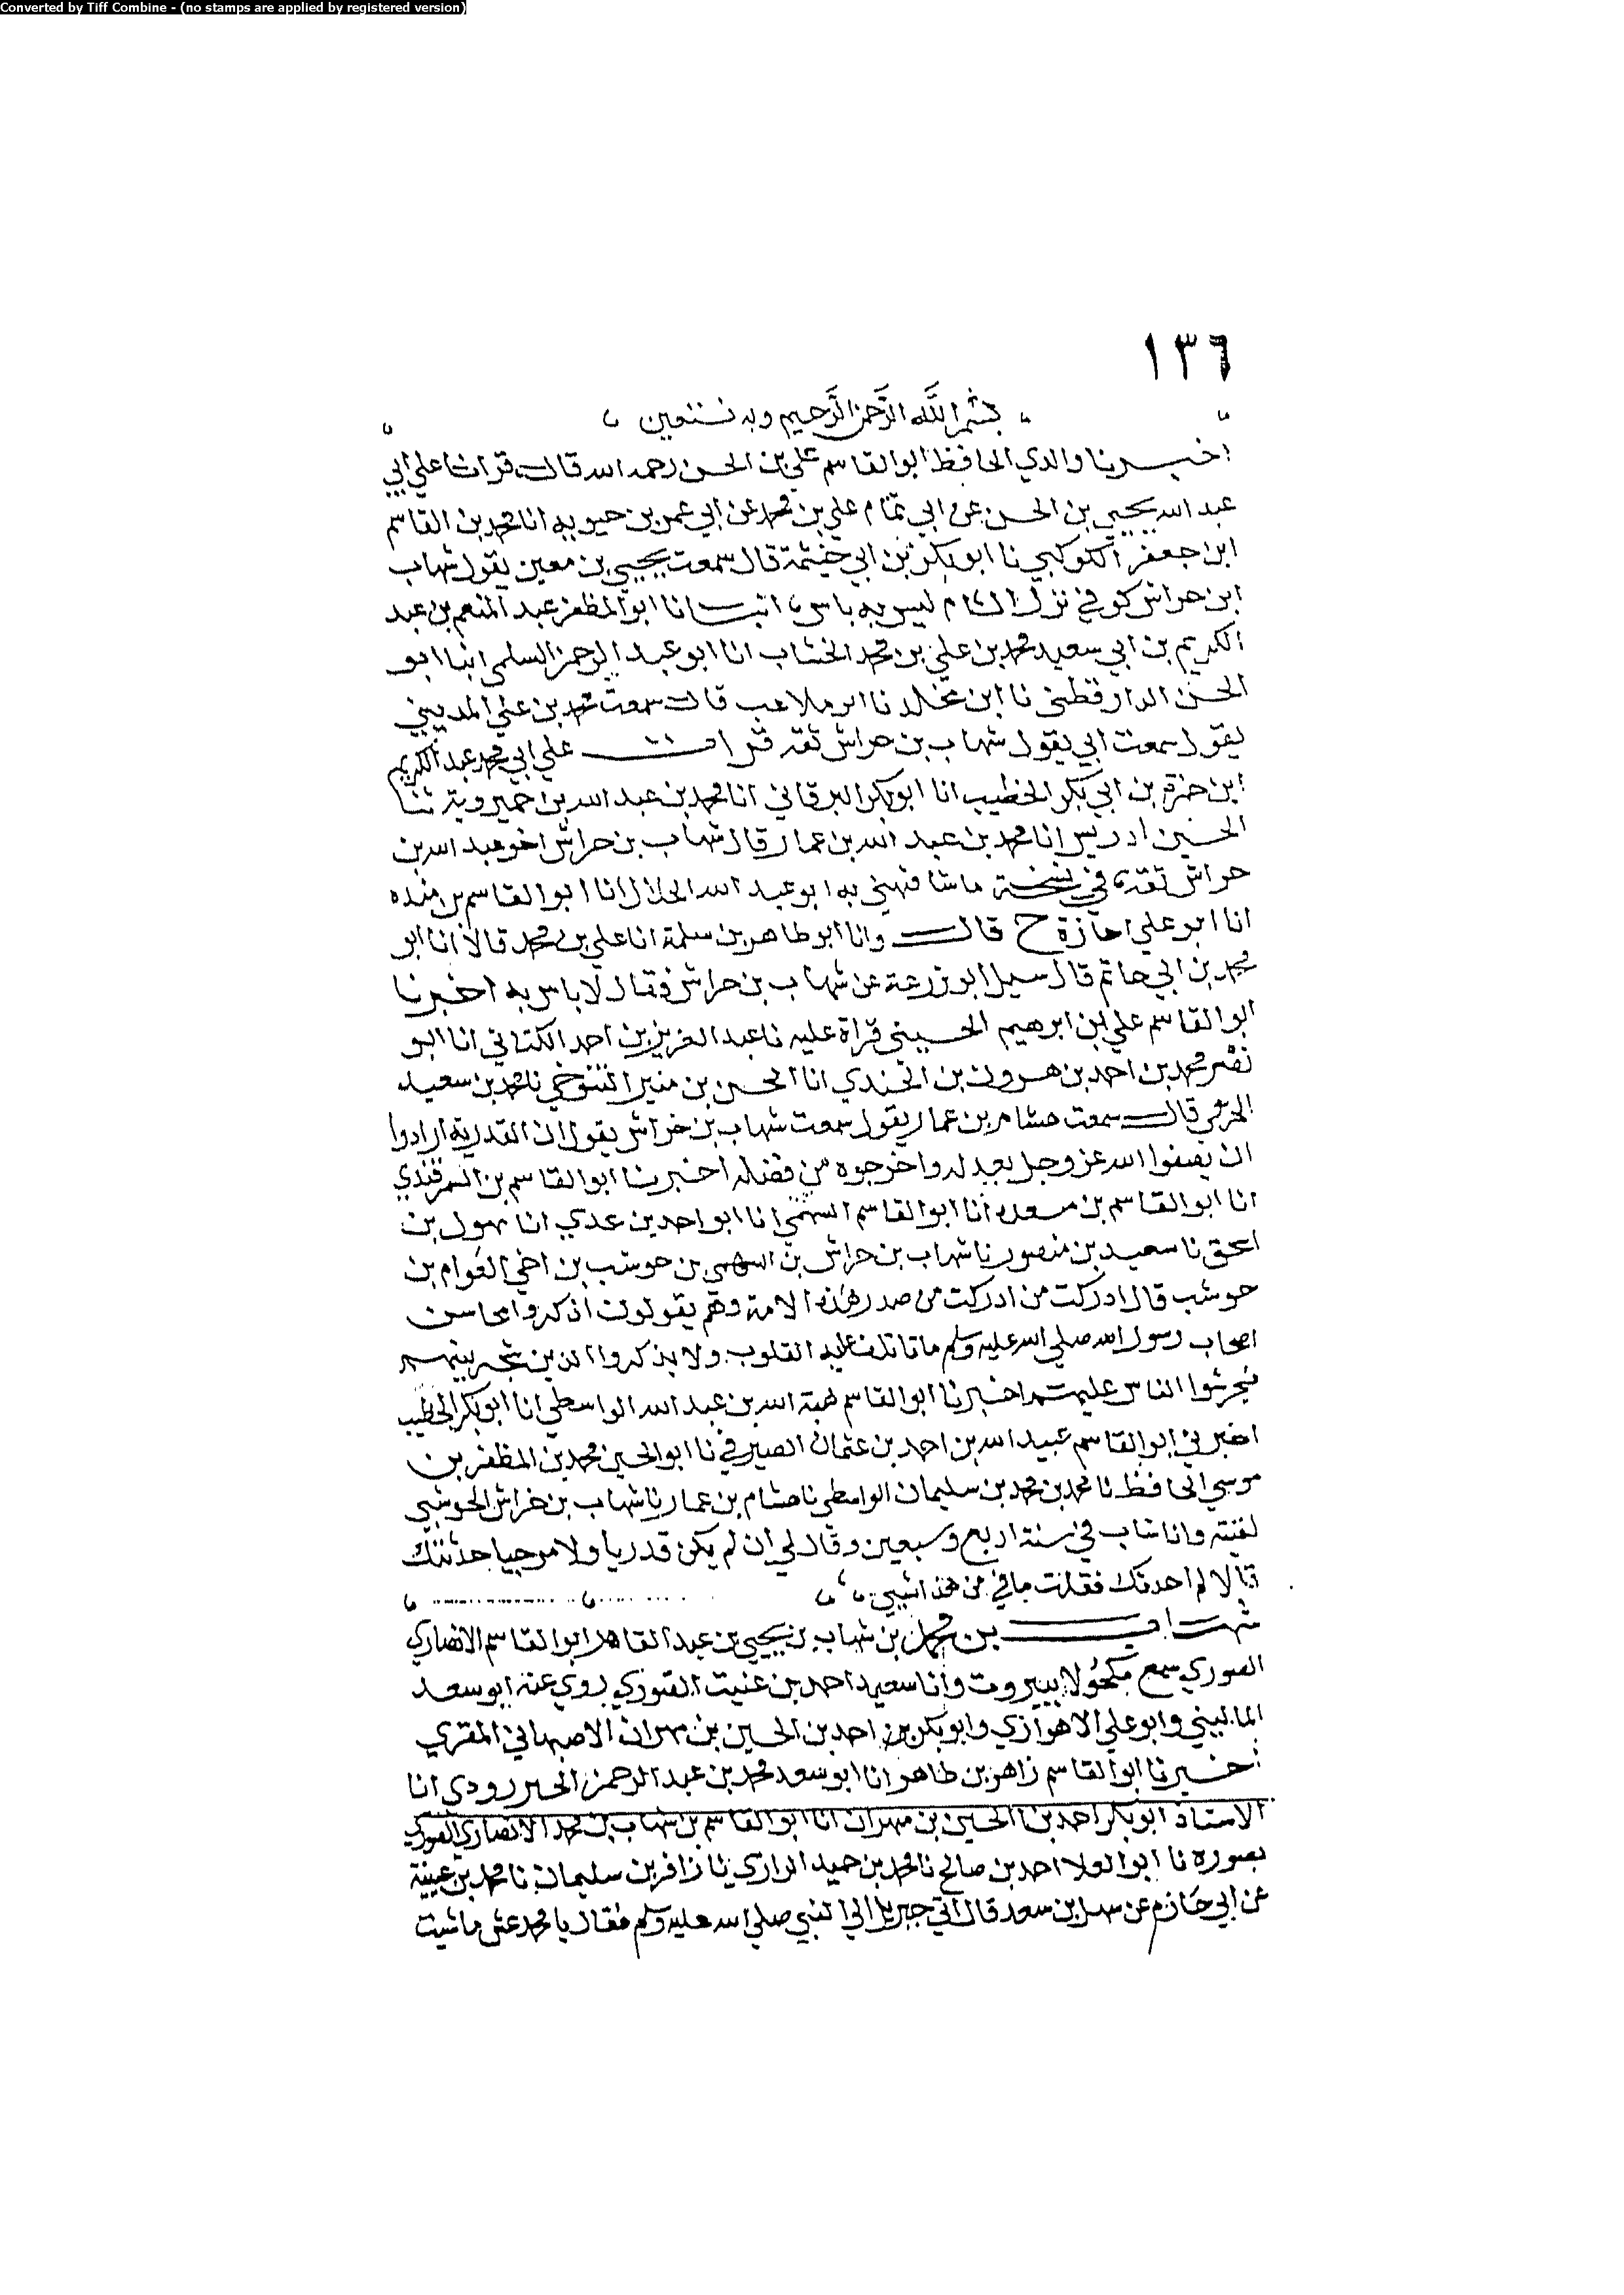 Converted by Tiff Combine - (no stamps are applied by registered version)
١٣٦
بسم الله الرحمن الرحيم وبه نستعين
اخبرنا والدي الحافظ ابو القاسم علي بن الحسن رحمه الله قال قرات على ابي
عبد الله يحيي بن الحسن عن ابي تمام علي بن محمد عن ابي عمر بن حيويه انا محمد بن القاسم
ابن جعفر الكوكبي نا ابو بكر بن ابي خيثمة قال سمعت يحيي بن معين يقول شهاب
ابن حراش كوفي نزل الشام ليس به باس انبانا ابو المظفر عبد المنعم بن عبد
الكريم بن ابي سعيد محمد بن علي بن محمد الخشاب انا ابو عبد الرحمن السلمي انبا ابو
الحسن الدارقطني نا ابن مخلد نا ابو ملاعب قال سمعت محمد بن علي المديني
يقول سمعت ابي يقول شهاب بن حراش ثقه قرات علي ابي محمد عبد الكريم
ابن حمزة بن ابي بكر الخطيب انا ابو بكر البرقاني انا محمد بن عبد الله بن خميرويه ثنا
الحسين ادريس انا محمد بن عبد الله بن عمار قال شهاب بن حراش اخو عبد الله بن
حراش ثقه في نسخة ما شافهني به ابو عبد الله الخلال انا ابو القاسم بن منده
انا ابو علي اجازة ح قال وانا ابو طاهر بن سلمة انا علي بن محمد قالا انا ابو
محمد بن ابي حاتم قال سيل ابو زرعة عن شهاب بن حراش فقال لا باس به اخبرنا
ابو القاسم علي بن ابرهيم الحسيني قراة عليه نا عبد العزيز بن احمد الكتاني انا ابو
نصر محمد بن احمد بن هرون بن الجندي انا الحسن بن منير التنوخي نا محمد بن سعيد
قال سمعت هشام بن عمار يقول سمعت شهاب بن خراش يقول ان القدرية ارادوا
ان يصفوا الله عز وجل بعدله واخرجوه من فضله اخبرنا ابو القاسم بن السمرقندي
انا ابو القاسم بن مسعده انا ابو القاسم السهمي انا ابو احمد بن عدي انا بهول بن
اسحق نا سعيد بن منصور نا شهاب بن حراش بن حوشب بن اخي العوام بن
حوشب قال ادركت من ادركت من صدر هذه الامة وهم يقولون اذكروا محاسن
اصحاب رسول الله صلي الله عليه وسلم ما تاتلف عليه القلوب ولا يذكروا الذين شجر بينهم
فيحرشوا الناس عليهم اخبرنا ابو القاسم هبة الله بن عبد الله الواسطي انا ابو بكر الخطيب
اخبرني ابو القاسم عبيد الله بن احمد بن عثمان الصيرفي نا ابو الحسين محمد بن المظفر بن
موسي الحافظ نا محمد بن محمد بن سليمان الواسطي نا هشام بن عمار نا شهاب بن خراش الحوشبي
لقيته وانا شاب في سنة اربع وسبعين وقال لي ان لم يكن قدريا ولا مرجيا حدثتك
قالا لم احدثك فقلت ما في من هذا شيي
شهاب بن محمد بن شهاب بن يحيي بن عبد القاهر ابو القاسم الانصاري
الصوري سمع مكحولا ببيروت وانا سعيد احمد بن الصوري روي عنه ابو سعد
الماليني وابو علي الاهوازي وابو بكر بن احمد بن الحسين بن مهران الاصبهاني المقري
اخبرنا ابو القاسم زاهر بن طاهر انا ابو سعد محمد بن عبد الرحمن انا
الاستاذ ابو بكر احمد بن الحسين بن مهران انا ابو القاسم بن شهاب بن محمد الانصاري الصوري
بصوره نا ابو العلا احمد بن صالح نا محمد بن حميد الرازي نا زافر بن سليمان نا محمد بن عيينة
عن ابي حازم عن سهل بن سعد قال اتي جبريل الي النبي صلي الله عليه وسلم فقال يا محمد عش ما شيت